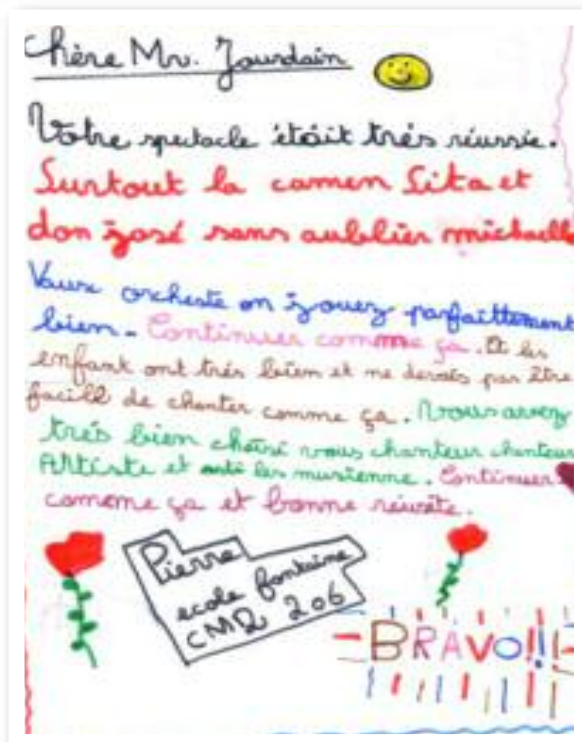 Chère Mr. Jourdain
Votre spectacle étàit très réussie.
Surtout la camen Lita et
don josé sans aublier michaelle
Vaux orcheste on jouez parfaittement
bien. Continuer comme ça. Et les
enfant ont très bien et ne devais pas être
facile de chanter comme ça. Vous avvez
très bien choisi vous chanteur chanteur
Artiste et les musienne. Continuer
comeme ça et bonne réusite.
Pierre
ecole fontaine
CM2 206
BRAVO!!!